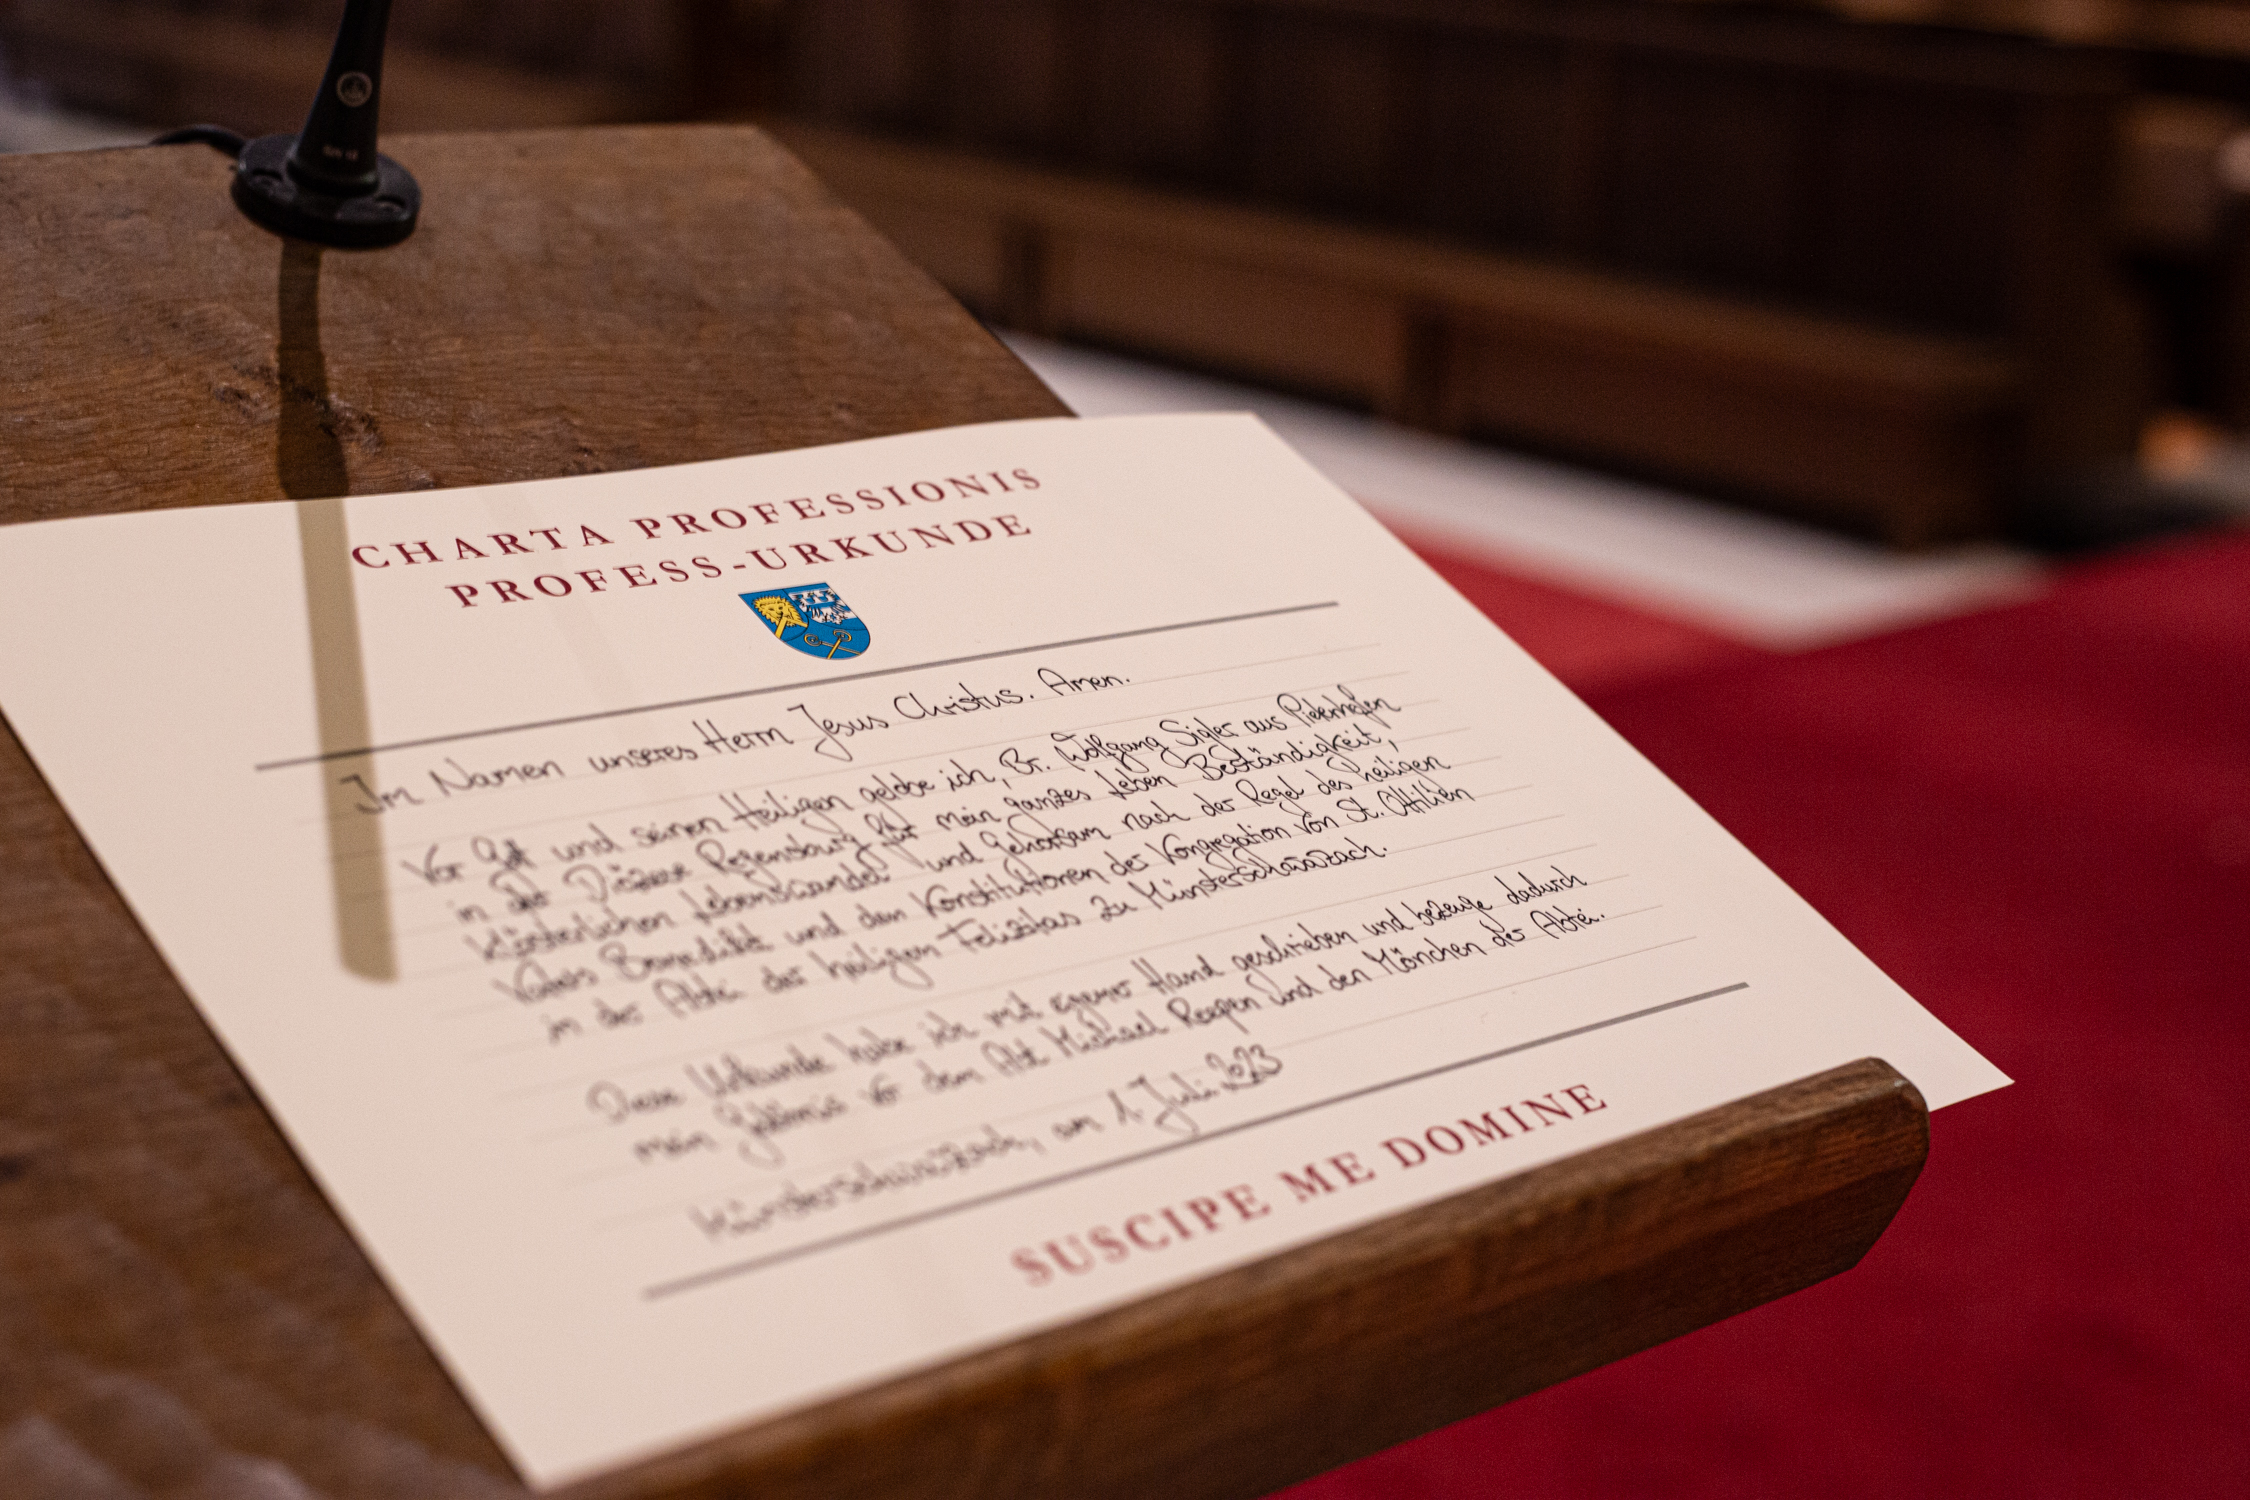 CHARTA PROFESSIONIS
PROFESS-URKUNDE
Im Namen unseres Herrn Jesus Christus. Amen.
Vor Gott und seinen Heiligen gelobe ich, Br. Wolfgang Sigler aus
in der Diözese Regensburg für mein ganzes Leben Beständigkeit,
klösterlichen Lebenswandel und Gehorsam nach der Regel des heiligen
Vaters Benedikt und den Konstitutionen der Kongregation von St. Ottilien
in der Abtei der heiligen Felizitas zu Münsterschwarzach.
Diese Urkunde habe ich mit eigener Hand geschrieben und bezeuge dadurch
mein Gelöbnis vor dem Abt Michael Reepen und den Mönchen der Abtei.
Münsterschwarzach, am 1. Juli 2023
SUSCIPE ME DOMINE